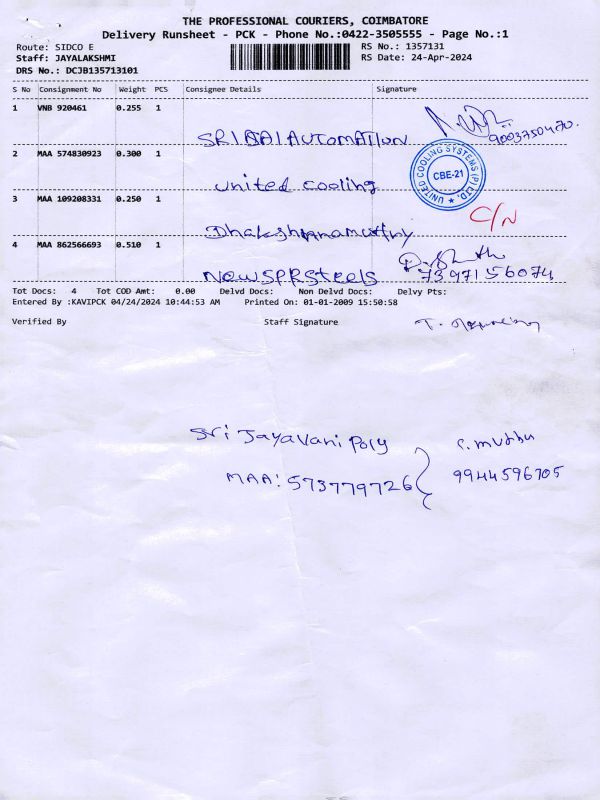 THE PROFESSIONAL COURIERS, COIMBATORE
Delivery Runsheet - PCK - Phone No.:0422-3505555 - Page No.:1
Route: SIDCO E
RS No.: 1357131
Staff: JAYALAKSHMI
RS Date: 24-Apr-2024
DRS No.: DCJB135713101
S No Consignment No Weight PCS Consignee Details Signature
1 VNB 920461 0.255 1
SRI AUTOMATION 9003750470.
2 MAA 574830923 0.300 1
United cooling
UNITED COOLING SYSTEMS (P) LTD. CBE-21
3 MAA 109208331 0.250 1 C/N
4 MAA 862566693 0.510 1
New SPR Steels 7397156074
Tot Docs: 4 Tot COD Amt: 0.00 Delvd Docs: Non Delvd Docs: Delvy Pts:
Entered By :KAVIPCK 04/24/2024 10:44:53 AM Printed On: 01-01-2009 15:50:58
Verified By Staff Signature
Sri Jayavani Poly
MAA: 573779726
9944596705